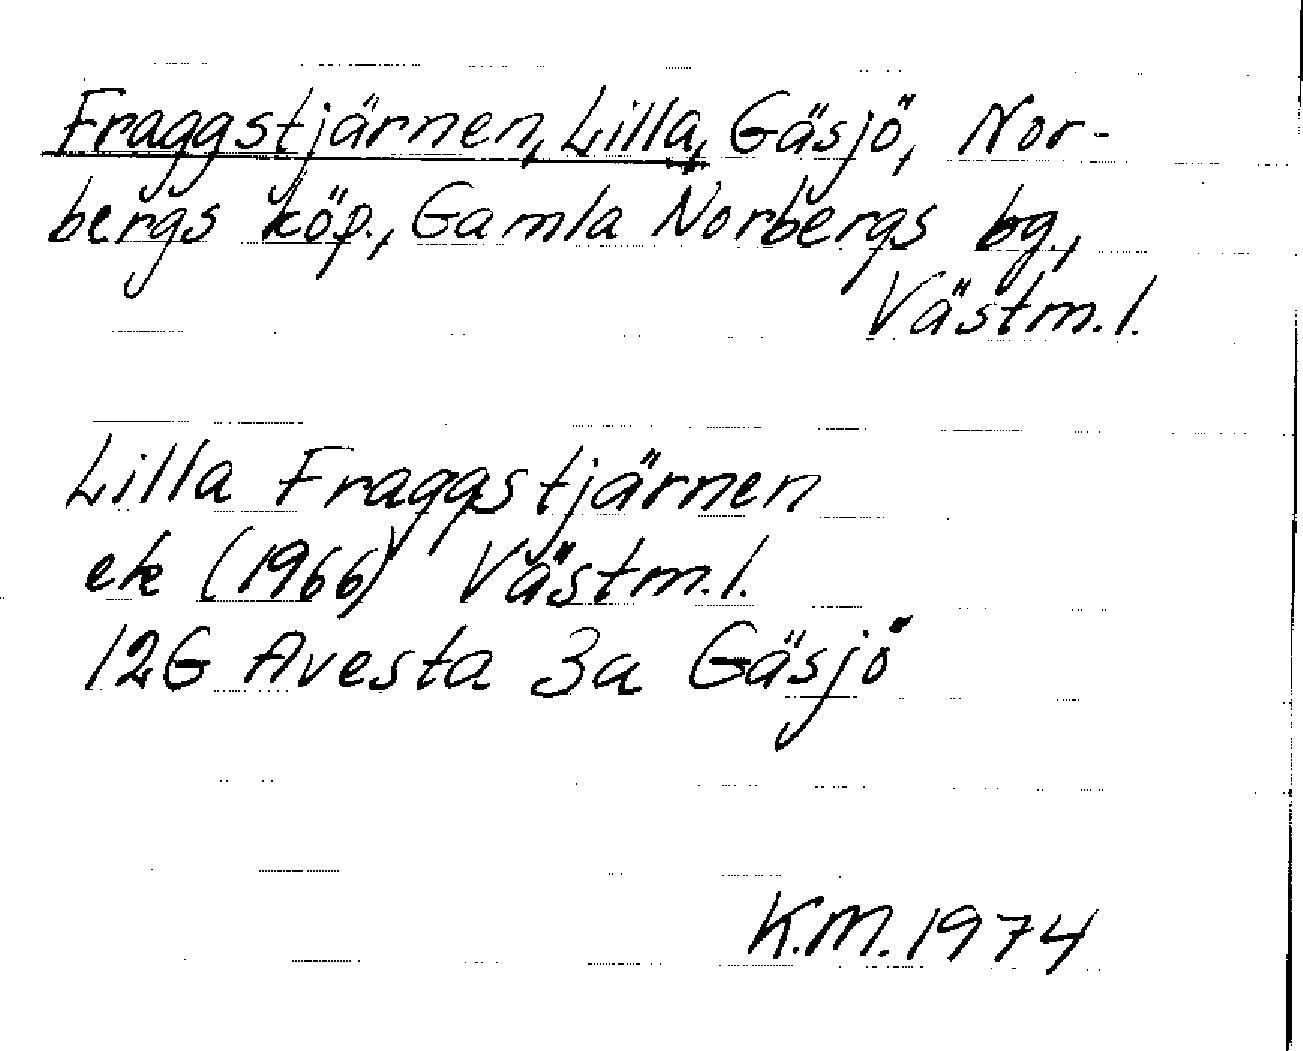 Fraggstjärnen, Lilla, Gäsjö, Nor-
bergs köp., Gamla Norbergs bg.,
Västm.l.
Lilla Fraggstjärnen
ek (1966) Västm.l.
12G Avesta 3a Gäsjö
K.M. 1974